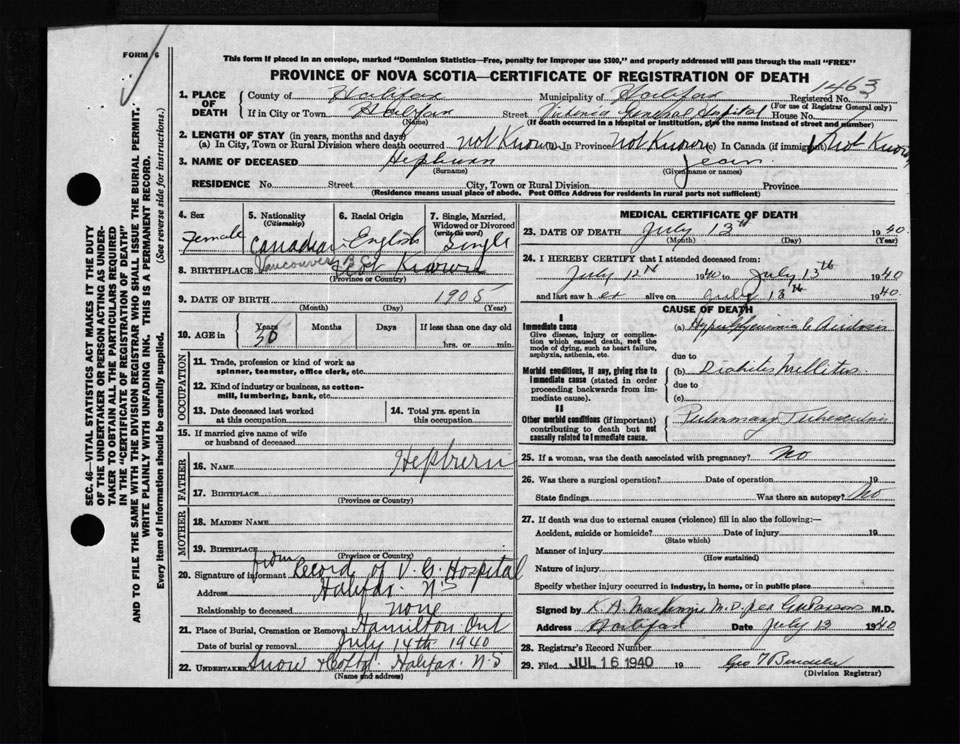 FORM 6
This form if placed in an envelope, marked "Dominion Statistics—Free, penalty for improper use $300," and properly addressed will pass through the mail "FREE"
PROVINCE OF NOVA SCOTIA—CERTIFICATE OF REGISTRATION OF DEATH
1463
1. PLACE OF DEATH County of Halifax Municipality of Halifax Registered No.
(For use of Registrar General only)
If in City or Town Halifax Street Victoria General Hospital House No.
(Name) (If death occurred in a hospital or institution, give the name instead of street and number)
2. LENGTH OF STAY (in years, months and days)
(a) In City, Town or Rural Division where death occurred not Known (b) In Province not Known (c) In Canada (if immigrant) not Known
3. NAME OF DECEASED Hepburn Jean
(Surname) (Given name or names)
RESIDENCE No. Street City, Town or Rural Division Province
(Residence means usual place of abode. Post Office Address for residents in rural parts not sufficient)
4. Sex Female
5. Nationality (Citizenship) Canadian
6. Racial Origin English
7. Single, Married, Widowed or Divorced (write the word) Single
8. BIRTHPLACE Vancouver B.C. Not Known
(Province or Country)
9. DATE OF BIRTH 1905
(Month) (Day) (Year)
10. AGE in Years Months Days If less than one day old
hrs. or min.
OCCUPATION
11. Trade, profession or kind of work as spinner, teamster, office clerk, etc.
12. Kind of industry or business, as cotton-mill, lumbering, bank, etc.
13. Date deceased last worked at this occupation
14. Total yrs. spent in this occupation
15. If married give name of wife or husband of deceased
FATHER
16. NAME Hepburn
17. BIRTHPLACE
(Province or Country)
MOTHER
18. MAIDEN NAME
19. BIRTHPLACE
(Province or Country)
20. Signature of informant from Record of V. G. Hospital
Address Halifax N S
Relationship to deceased none
21. Place of Burial, Cremation or Removal Hamilton Ont
Date of burial or removal July 14th 1940
22. UNDERTAKER Snow & Co Halifax N. S
(Name and address)
MEDICAL CERTIFICATE OF DEATH
23. DATE OF DEATH July 13th 1940.
(Month) (Day) (Year)
24. I HEREBY CERTIFY that I attended deceased from:
July 12th 1940 to July 13th 1940
and last saw her alive on July 13th 1940.
CAUSE OF DEATH
I
Immediate cause
Give disease, injury or complication which caused death, not the mode of dying, such as heart failure, asphyxia, asthenia, etc.
(a) Hyperglycemia &
due to
Morbid conditions, if any, giving rise to immediate cause (stated in order proceeding backwards from immediate cause).
(b) Diabetes Mellitus
due to
(c)
II
Other morbid conditions (if important) contributing to death but not causally related to immediate cause.
Pulmonary Tuberculosis
25. If a woman, was the death associated with pregnancy? No
26. Was there a surgical operation? Date of operation 19
State findings Was there an autopsy? No
27. If death was due to external causes (violence) fill in also the following:—
Accident, suicide or homicide? Date of injury 19
(State which)
Manner of injury
(How sustained)
Nature of injury
Specify whether injury occurred in industry, in home, or in public place
Signed by K. A. MacKenzie M.D. per M.D.
Address Halifax Date July 13 1940
28. Registrar's Record Number
29. Filed JUL 16 1940 19
(Division Registrar)
SEC. 46—VITAL STATISTICS ACT MAKES IT THE DUTY
OF THE UNDERTAKER OR PERSON ACTING AS UNDER-
TAKER TO OBTAIN ALL THE PARTICULARS REQUIRED
IN THE "CERTIFICATE OF REGISTRATION OF DEATH"
AND TO FILE THE SAME WITH THE DIVISION REGISTRAR WHO SHALL ISSUE THE BURIAL PERMIT.
WRITE PLAINLY WITH UNFADING INK. THIS IS A PERMANENT RECORD.
Every item of Information should be carefully supplied. (See reverse side for instructions.)